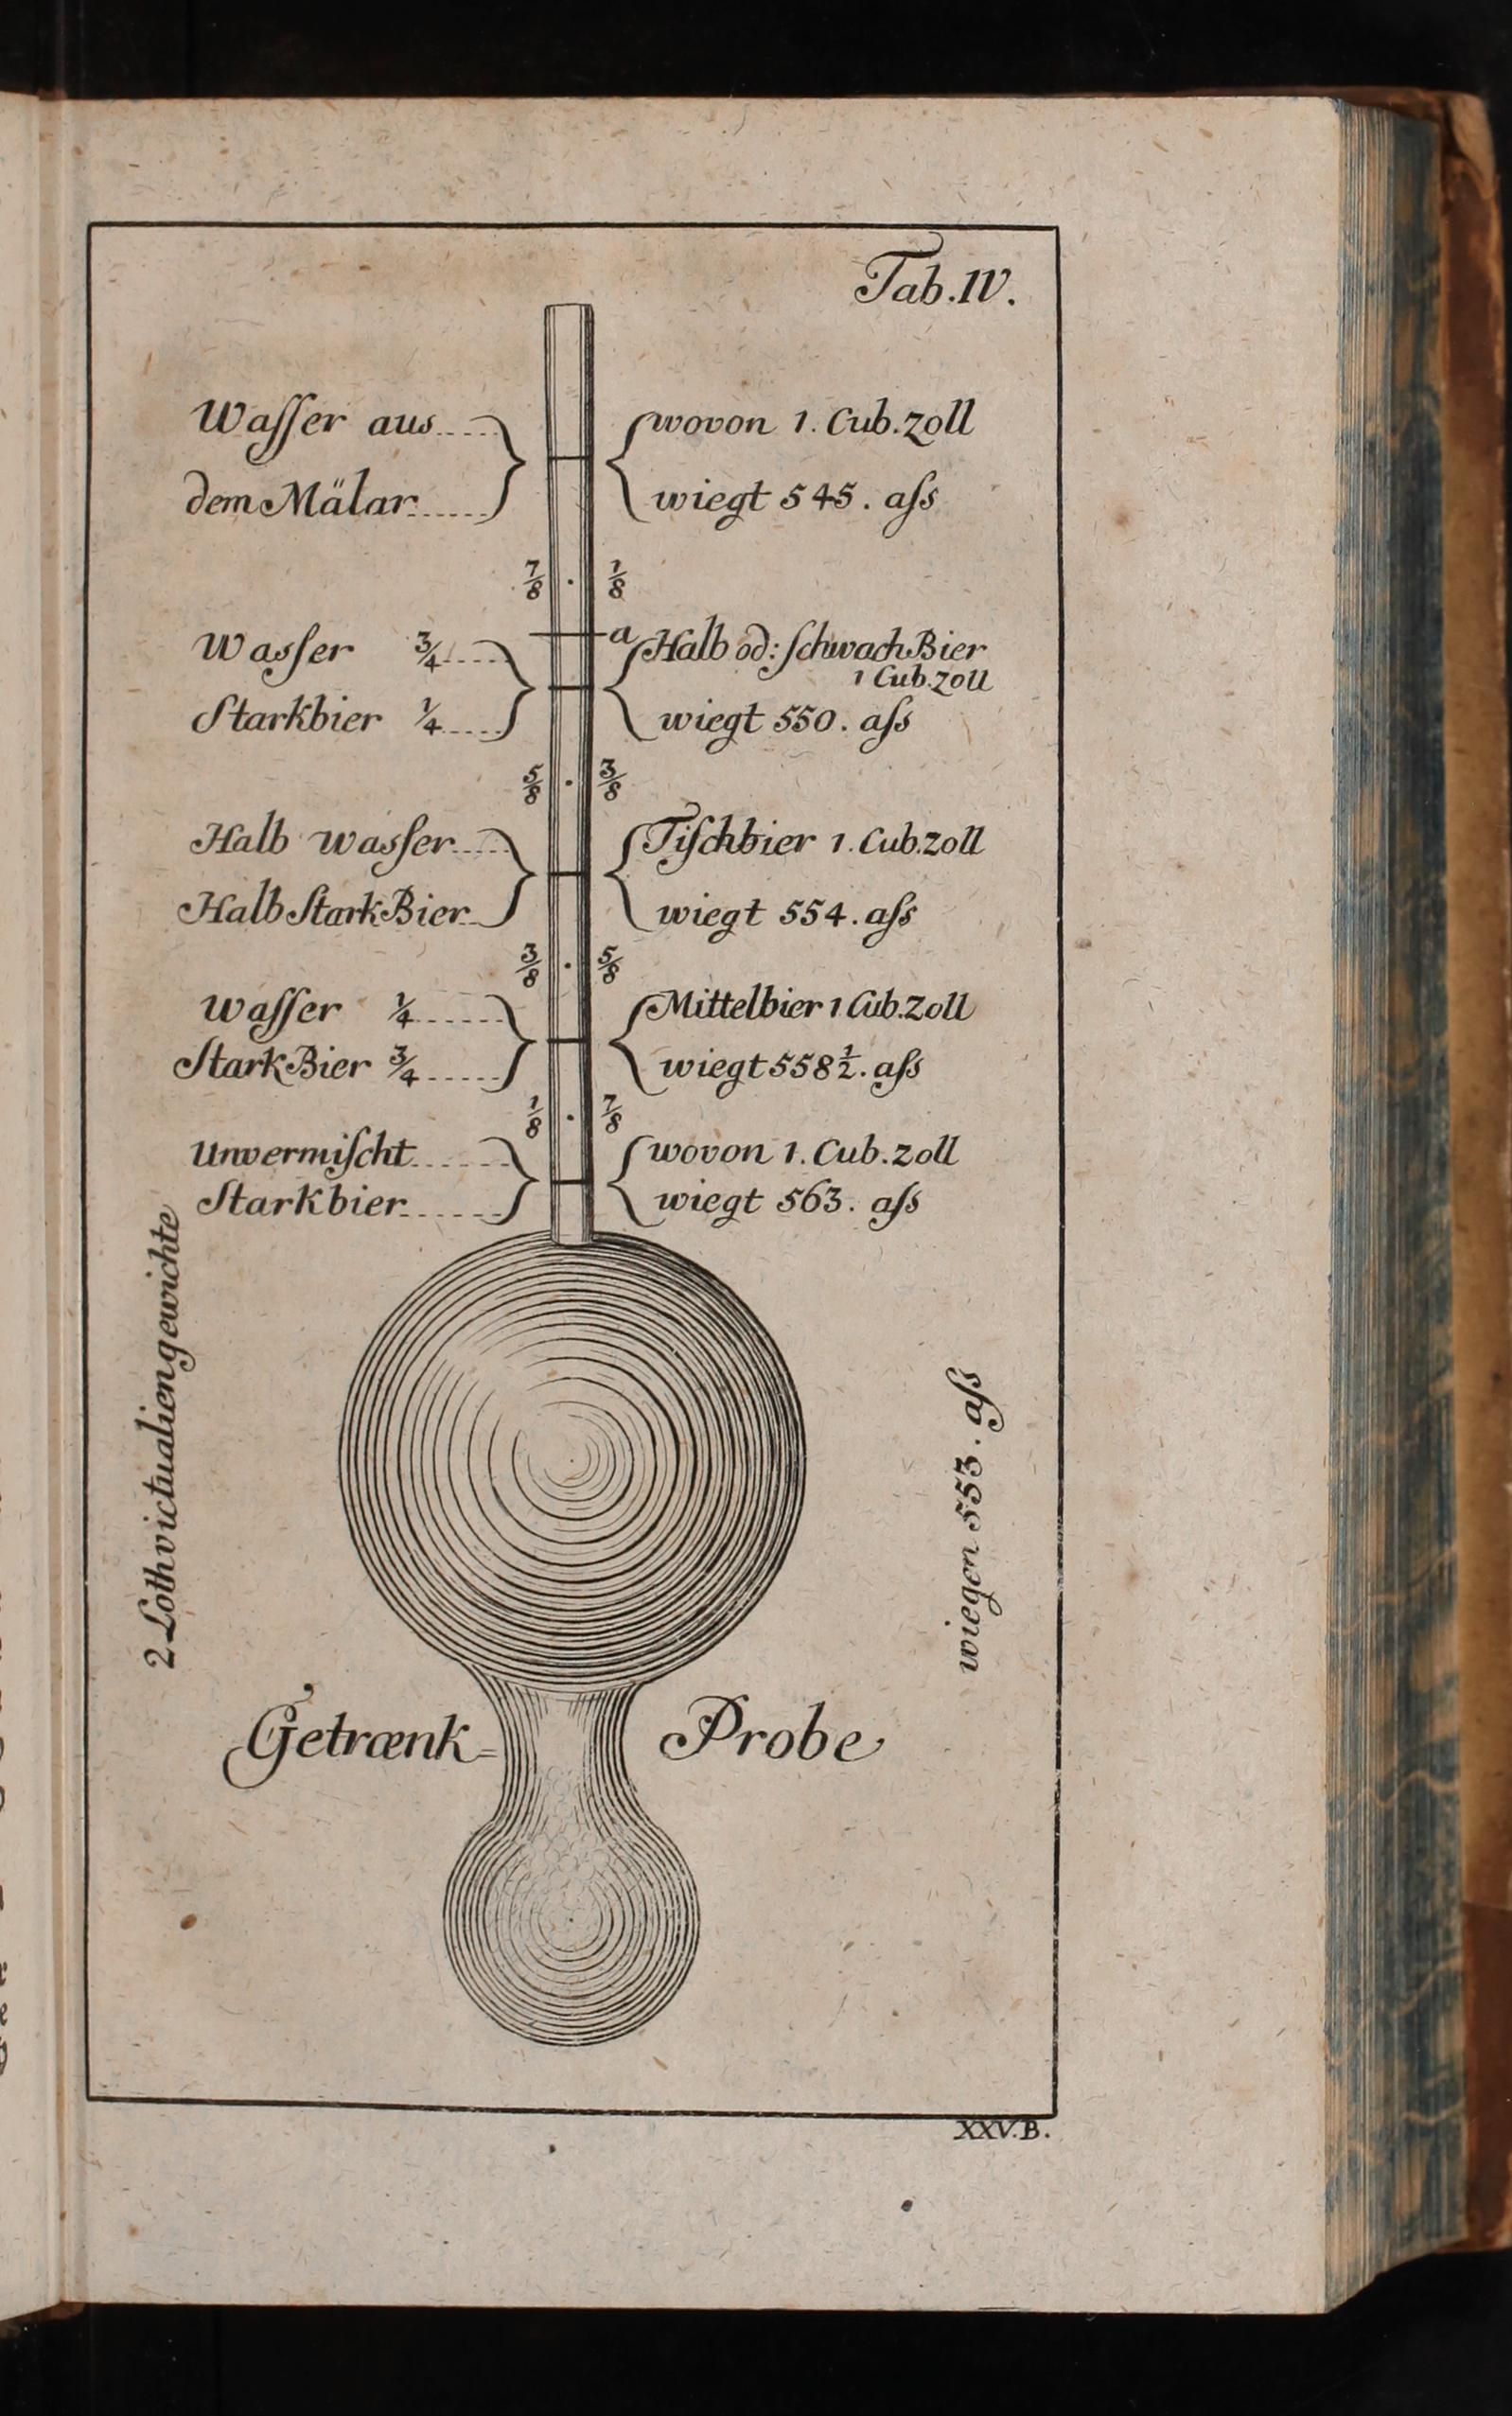 Tab. IV.
Waſſer aus
dem Mälar
wovon 1. Cub. zoll
wiegt 545. aſs
7/8
1/8
a
Wasſer 3/4
Starkbier 1/4
Halb od: ſchwach Bier
1 Cub. zoll
wiegt 550. aſs
5/8
3/8
Halb wasſer
Halb Stark Bier
Tiſchbier 1. Cub. zoll
wiegt 554. aſs
3/8
5/8
Waſſer 1/4
Stark Bier 3/4
Mittelbier 1 Cub. Zoll
wiegt 558 1/2. aſs
1/8
7/8
Unvermiſcht
Starkbier
wovon 1. Cub. zoll
wiegt 563. aſs
2 Loth victualien gewichte
wiegen 553. aſs
Getrænk= Probe
XXV. B.